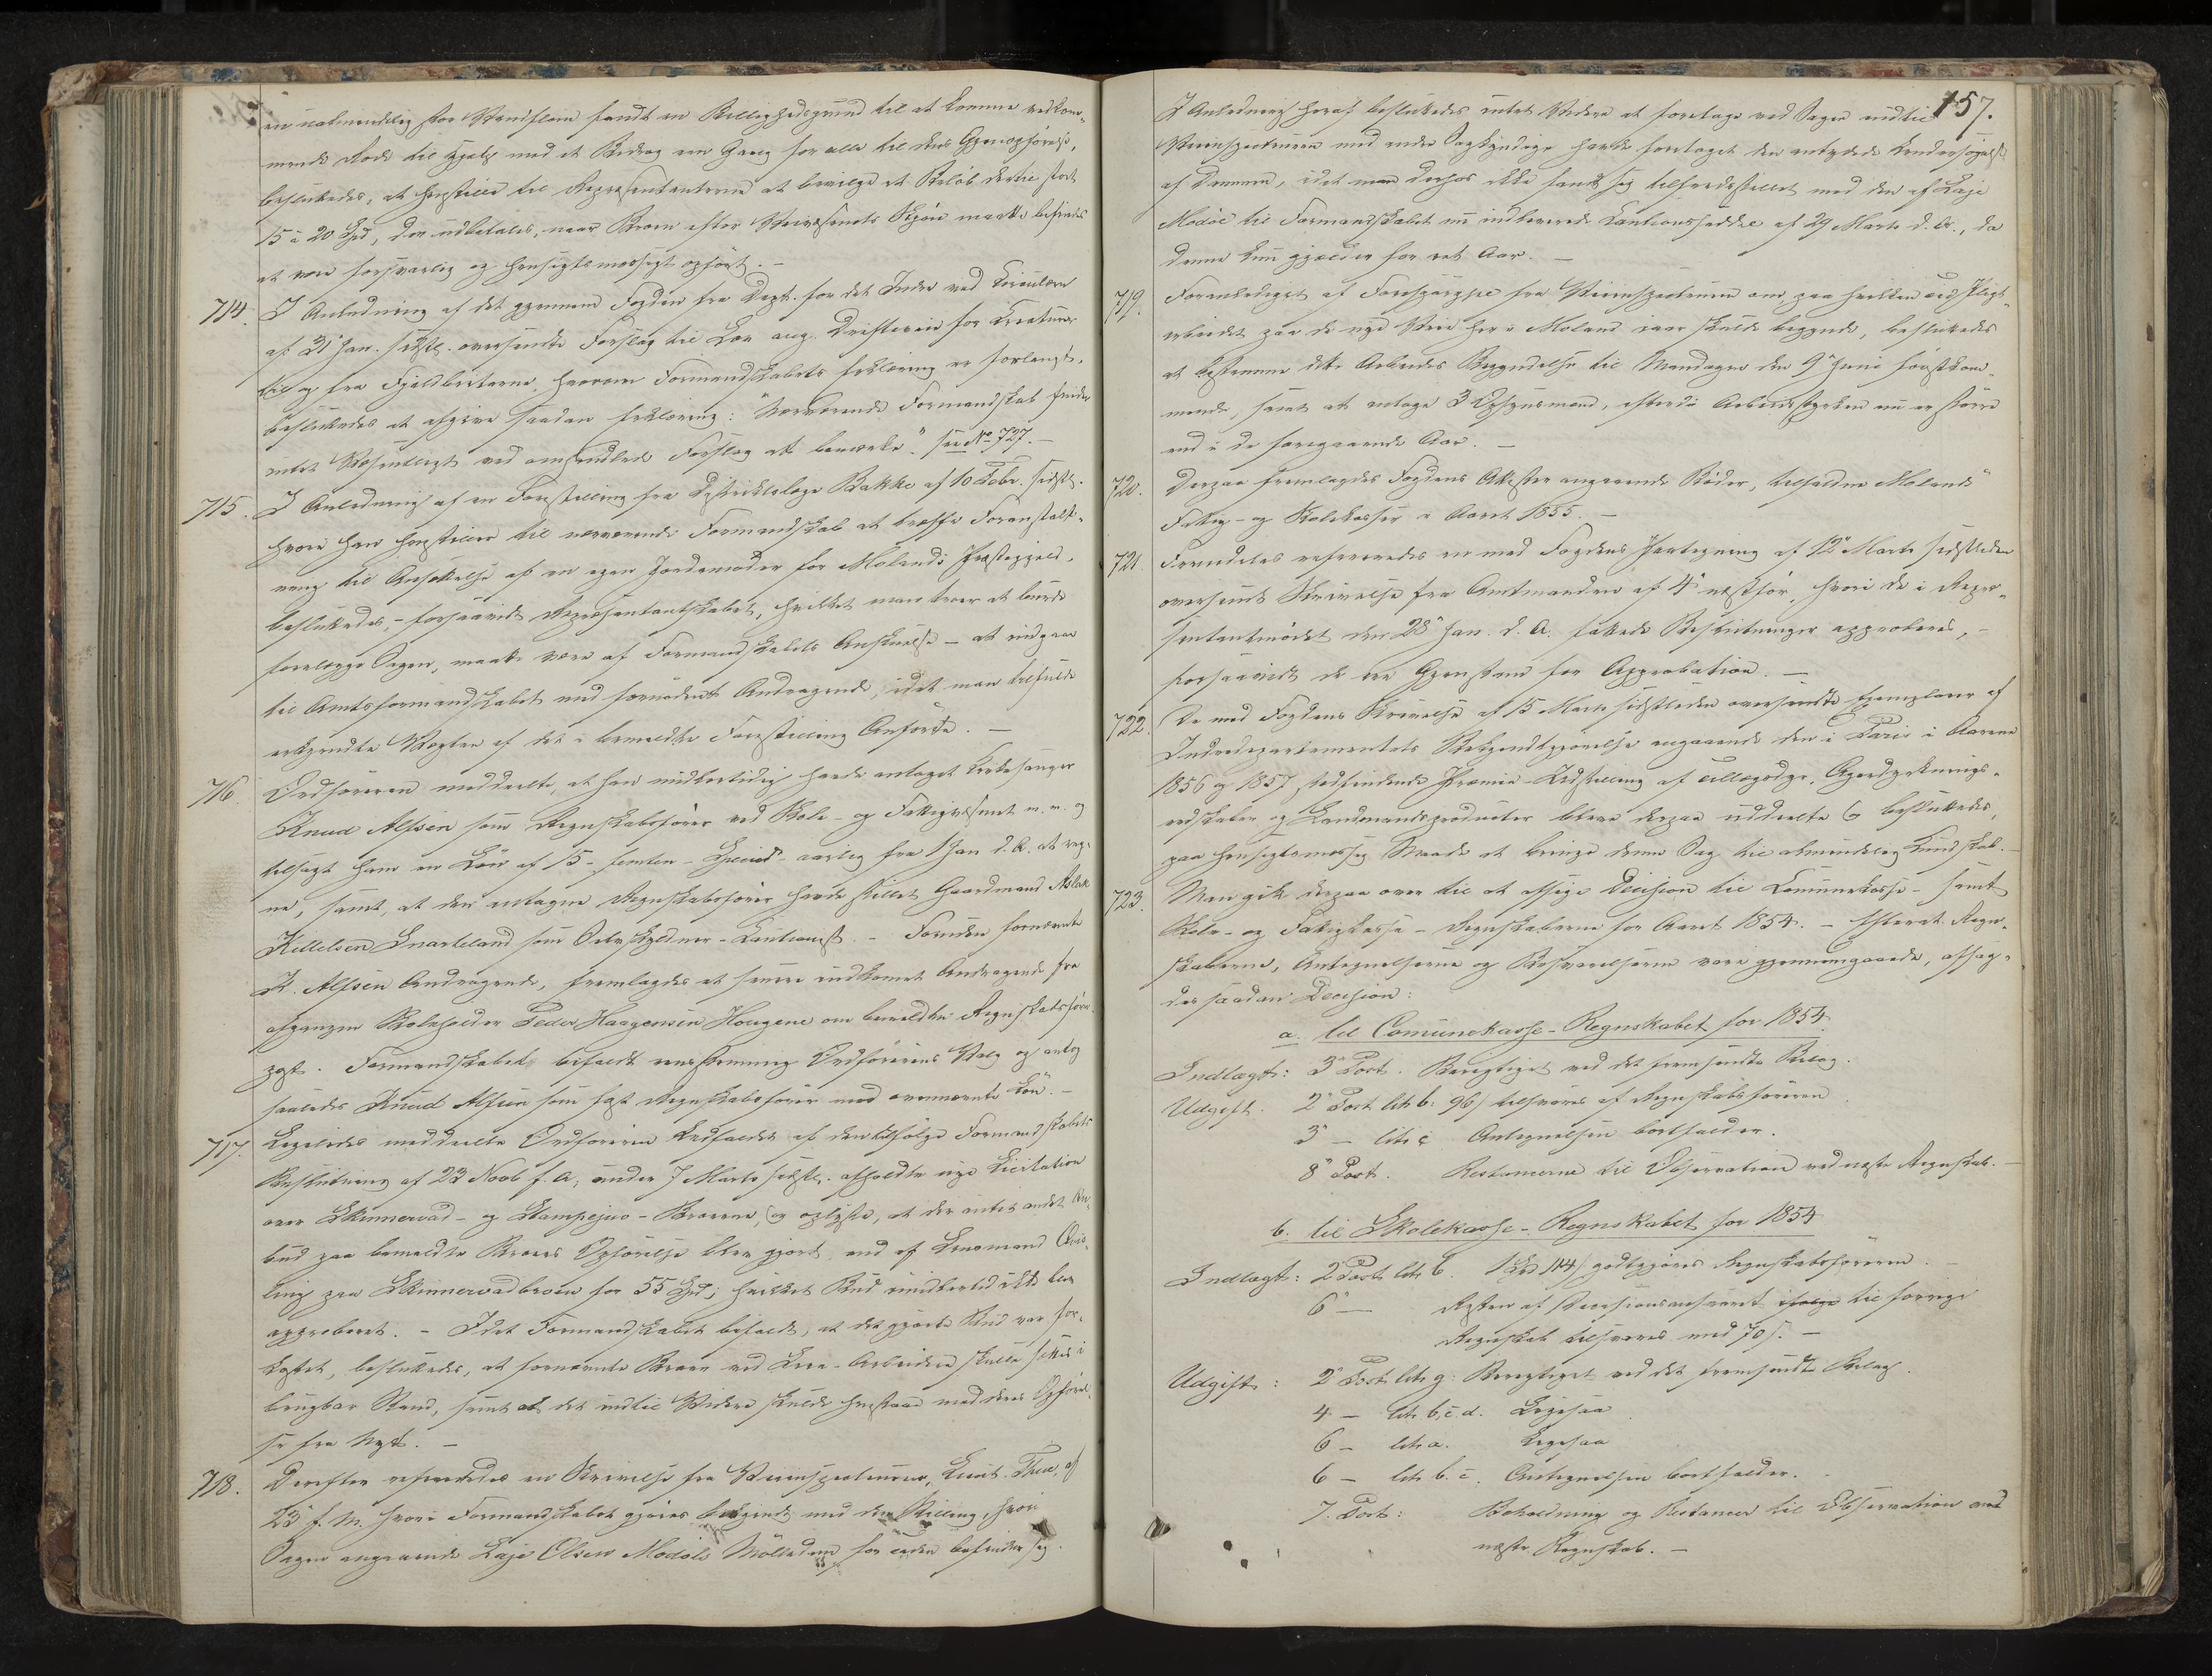 en ualmindelig stor Vandflom fandt en Billighedsgrund til at komme vedkom-
mende Rode til Hjælp med et Bidrag een Gang for alle til dens Gjenopførelse,
besluttedes, at henstille til Repræsentanterne at bevilge et Beløb dertil stort
15 à 20 Spd, der udbetales, naar Broen efter Veivæsenets Skjøn maatte befindes
at være forsvarlig og hensigtsmæssigt opført. —
714. I Anledning af det gjennem Fogden fra Dept. for det Indre ved Circulære
af 31 Jan. sidstl. oversendte Forslag til Lov ang. Drifteveie for Creaturer
til og fra Fjeldbeiterne, hvorom Formandskabets Erklæring er forlangt,
besluttedes at afgive saadan Erklæring: "Nærværende Formandskab finder
intet Væsentligt ved omhandlede Forslag at bemærke". see No 727. —
715. I Anledning af en Forestilling fra Distriktslæge Bakke af 10 Febr. sidstl.
hvori han henstiller til nærværende Formandskab at træffe Foranstalt-
ning til Ansættelse af en egen Jordemoder for Molands Præstegjeld,
besluttedes, — forsaavidt Repræsentantskabet, hvilket man troer at burde
forelægge Sagen, maatte være af Formandskabets Anskuelse — at indgaae
til Amtsformandskabet med fornødent Andragende, idet man tilfulde
erkjendte Vægten af det i bemeldte Forestilling Anførte. —
716. Ordføreren meddeelte, at han midlertidig havde antaget Kirkesanger
Knud Alfsen som Regnskabsfører ved Skole- og Fattigvæsenet m. m. og
tilsagt ham en Løn af 15 - femten - Specied. aarlig fra 1 Jan d. A. at reg-
ne, samt, at den antagne Regnskabsfører havde stillet Gaardmand Aslak
Killelsen Snarteland som Selvskyldner-Cautionist. — Foruden fornævnte
K. Alfsens Andragende, fremlagdes et senere indkomet Andragende fra
afgangen Skoleholder Peder Haagensen Haugene om bemeldte Regnskabsfører-
post. Formandskabet bifaldt eenstemmig Ordførerens Valg og antog
saaledes Knud Alfsen som fast Regnskabsfører med ovennævnte Løn. —
717. Ligeledes meddeelte Ordføreren Udfaldet af den ifølge Formandskabets
Beslutning af 23 Novb f. A, under 7 Marts sidstl. afholdte nye Licitation
over Skinnervad- og Stampejuv-Broerne, og oplyste, at der intet andet An-
bud paa bemeldte Broers Opførelse blev gjort, end af Lensmand
paa Skinnervadbroen for 55 Spd; hvilket Bud imidlertid ikke blev
approberet. — Idet Formandskabet bifaldt, at det gjorte Bud var for-
kastet, besluttedes, at fornævnte Broer ved Leie-Arbeidere skulle sættes i
brugbar Stand, samt at det indtil Videre skulde henstaae med deres Opførel-
se fra Nyt. —
718. Derefter refereredes en Skrivelse fra Veiinspecteuren, Lieut. Thue, af
23 f. M. hvori Formandskabet gjøres bekjendt med den Stilling, hvori
Sagen angaaende Laje Olsen Modøls Mølledam for Tiden befinder sig.
157.
I Anledning heraf besluttedes intet Videre at foretage ved Sagen indtil
Veiinspecteuren med andre Sagkyndige havde foretaget den antydede Undersøgelse
af Dammen, idet man derhos ikke fandt sig tilfredsstillet med den af Laje
Modøl til Formandskabet nu indleverede Cautionsseddel af 29 Marts d. A., da
denne kun gjælder for eet Aar. —
719. Foranlediget af Forespørgsel fra Veiinspecteuren om, paa hvilken Tid Pligt-
arbeidet paa de nye Veie her i Moland iaar skulde begynde, besluttedes
at bestemme dette Arbeides Begyndelse til Mandagen den 9 Juni førstkom-
mende, samt at antage 3 Opsynsmænd, efterdi Arbeidsstyrken nu er større
end i de foregaaende Aar. —
720. Derpaa fremlagdes Fogdens Attester angaaende Bøder, tilfaldne Molands
Fattig- og Skolekasser i Aaret 1855. —
721. Fremdeles refereredes en med Fogdens Paategning af 12 Marts sidstleden
oversendt Skrivelse fra Amtmanden af 4 næstfør, hvori de i Repræ-
sentantmødet den 28 Jan. d. A. fattede Beslutninger approberes, —
forsaavidt de ere Gjenstand for Approbation. —
722. De med Fogdens Skrivelse af 15 Marts sidstleden oversendte Exemplarer af
Indredepartementets Bekjendtgjørelse angaaende den i Paris i Aarene
1856 og 1857 stedfindende Præmie-Udstilling af Tillægsdyr, Agerdyrknings-
redskaber og Landmandsproducter bleve derpaa uddeelte og besluttedes,
paa hensigtsmæssig Maade at bringe denne Sag til almindelig Kundskab. —
723. Man gik derpaa over til at afsige Decision til Comunekasse- samt
Skole- og Fattigkasse-Regnskaberne for Aaret 1854. — Efterat Regn-
skaberne, Antegnelserne og Besvarelserne vare gjennemgaaede, afsag-
des saadan Decision:
a. til Comunekasse-Regnskabet for 1854.
Indtægt: 3 Post. Berigtiget ved det fremsendte Bilag.
Udgift. 2 Post litr b: 96 s tilsvares af Regnskabsføreren
3 — litr c Antegnelsen bortfalder.
8 Post. Restancerne til Observation ved næste Regnskab. —
b. til Skolekasse-Regnskabet for 1854
Indtægt: 2 Post litr b. 1 Spd 114 s godtgjøres Regnskabsføreren. —
6 — Resten af Decisionsansvaret ifølge til forrige
Regnskab tilsvares med 70 s. —
Udgift: 2 Post litr g: Berigtiget ved det fremsendte Bilag.
4 — litr b, c, d. Ligesaa
6 — litr a. Ligesaa
6 — litr b. c. Antegnelsen bortfalder.
7. Post: Beholdning og Restancer til Observation ved
næste Regnskab. —